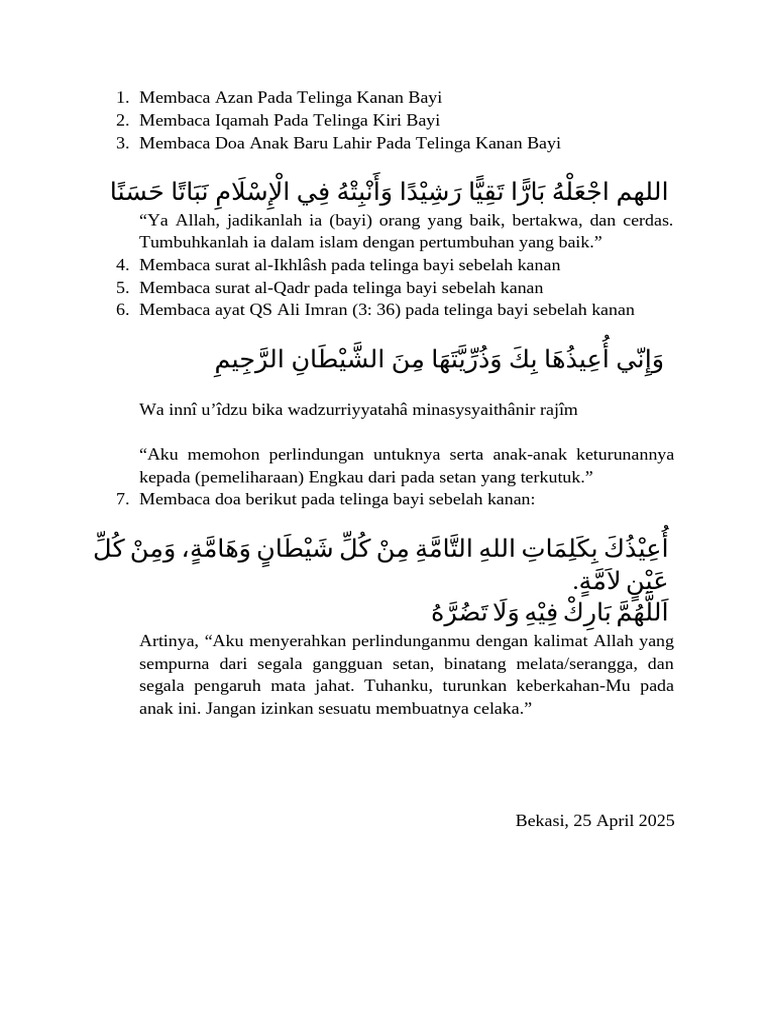 1. Membaca Azan Pada Telinga Kanan Bayi
2. Membaca Iqamah Pada Telinga Kiri Bayi
3. Membaca Doa Anak Baru Lahir Pada Telinga Kanan Bayi
اللهم اجْعَلْهُ بَارًّا تَقِيًّا رَشِيْدًا وَأَنْبِتْهُ فِي الْإِسْلَامِ نَبَاتًا حَسَنًا
“Ya Allah, jadikanlah ia (bayi) orang yang baik, bertakwa, dan cerdas.
Tumbuhkanlah ia dalam islam dengan pertumbuhan yang baik.”
4. Membaca surat al-Ikhlâsh pada telinga bayi sebelah kanan
5. Membaca surat al-Qadr pada telinga bayi sebelah kanan
6. Membaca ayat QS Ali Imran (3: 36) pada telinga bayi sebelah kanan
وَإِنّي أُعِيذُهَا بِكَ وَذُرِّيَّتَهَا مِنَ الشَّيْطَانِ الرَّجِيمِ
Wa innî u’îdzu bika wadzurriyyatahâ minasysyaithânir rajîm
“Aku memohon perlindungan untuknya serta anak-anak keturunannya
kepada (pemeliharaan) Engkau dari pada setan yang terkutuk.”
7. Membaca doa berikut pada telinga bayi sebelah kanan:
أُعِيْذُكَ بِكَلِمَاتِ اللهِ التَّامَّةِ مِنْ كُلِّ شَيْطَانٍ وَهَامَّةٍ، وَمِنْ كُلِّ
عَيْنٍ لاَمَّةٍ.
اَللَّهُمَّ بَارِكْ فِيْهِ وَلَا تَضُرَّهُ
Artinya, “Aku menyerahkan perlindunganmu dengan kalimat Allah yang
sempurna dari segala gangguan setan, binatang melata/serangga, dan
segala pengaruh mata jahat. Tuhanku, turunkan keberkahan-Mu pada
anak ini. Jangan izinkan sesuatu membuatnya celaka.”
Bekasi, 25 April 2025